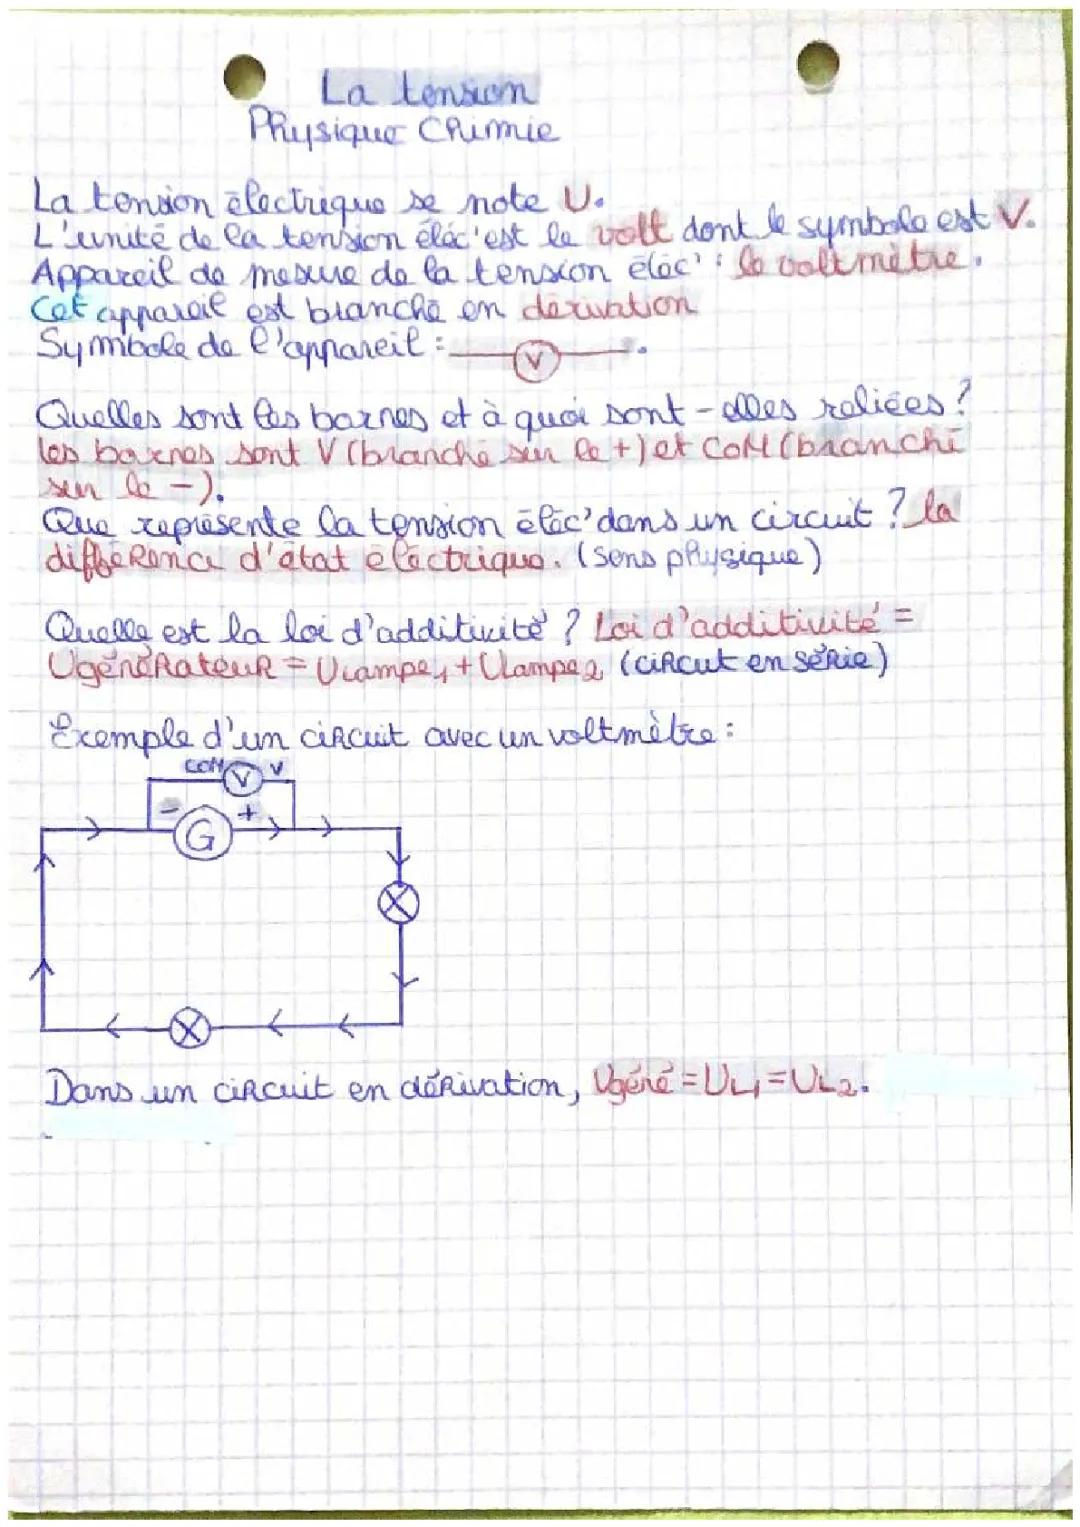 La tension
Physique Chimie
La tension électrique se note U.
L'unité de la tension éléc'est le volt dont le symbole est V.
Appareil de mesure de la tension éléc' : le voltmètre.
Cet appareil est branché en dérivation
Symbole de l'appareil : V .
Quelles sont les bornes et à quoi sont-elles reliées ?
les bornes sont V (branché sur le +) et COM (branché
sur le -).
Que représente la tension éléc' dans un circuit ? la
différence d'état électrique. (sens physique)
Quelle est la loi d'additivité ? Loi d'additivité =
Ugénérateur = ULampe1 + Ulampe2 (circut en série)
Exemple d'un circuit avec un voltmètre :
COM V V
- G +
Dans un circuit en dérivation, Ugéné = UL1 = UL2.